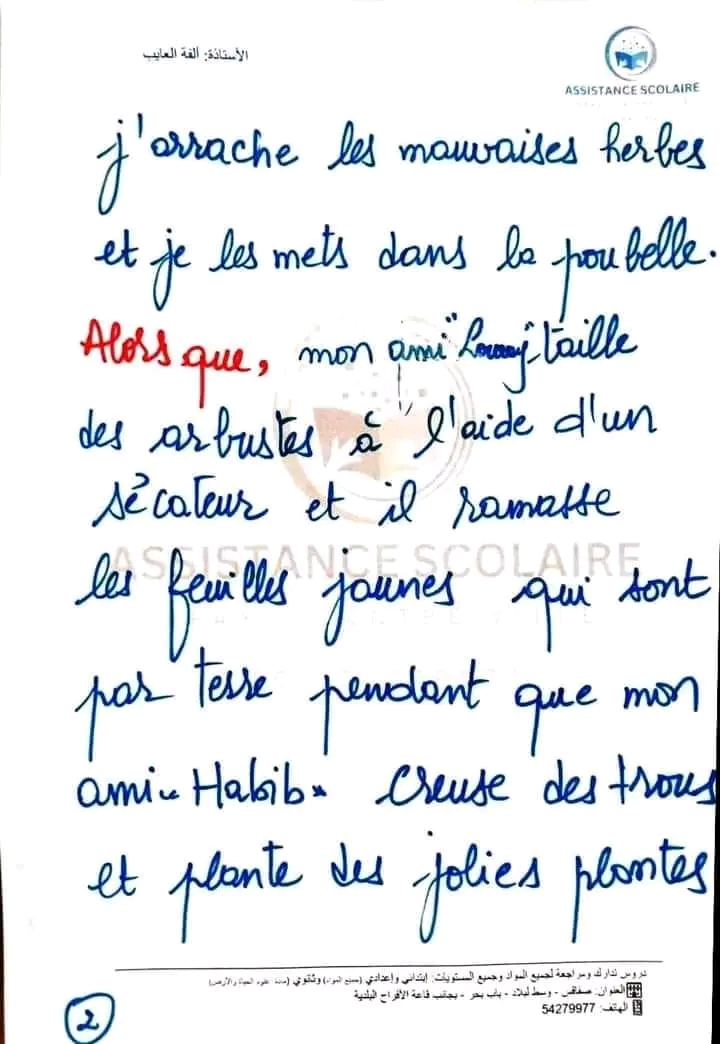 الأستاذة: ألفة العايب
ASSISTANCE SCOLAIRE
j'arrache les mauvaises herbes
et je les mets dans la poubelle.
Alors que, mon ami "Louay" taille
des arbustes à l'aide d'un
sécateur et il ramasse
ASSISTANCE SCOLAIRE
les feuilles jaunes qui sont
par terre pendant que mon
ami "Habib" creuse des trous
et plante des jolies plantes
دروس تدارك ومراجعة لجميع المواد وجميع المستويات: إبتدائي وإعدادي (جميع المواد) وثانوي (مادة علوم الحياة والأرض)
العنوان: صفاقس - وسط لبلاد - باب بحر - بجانب قاعة الأفراح البلدية
الهاتف: 54279977
2